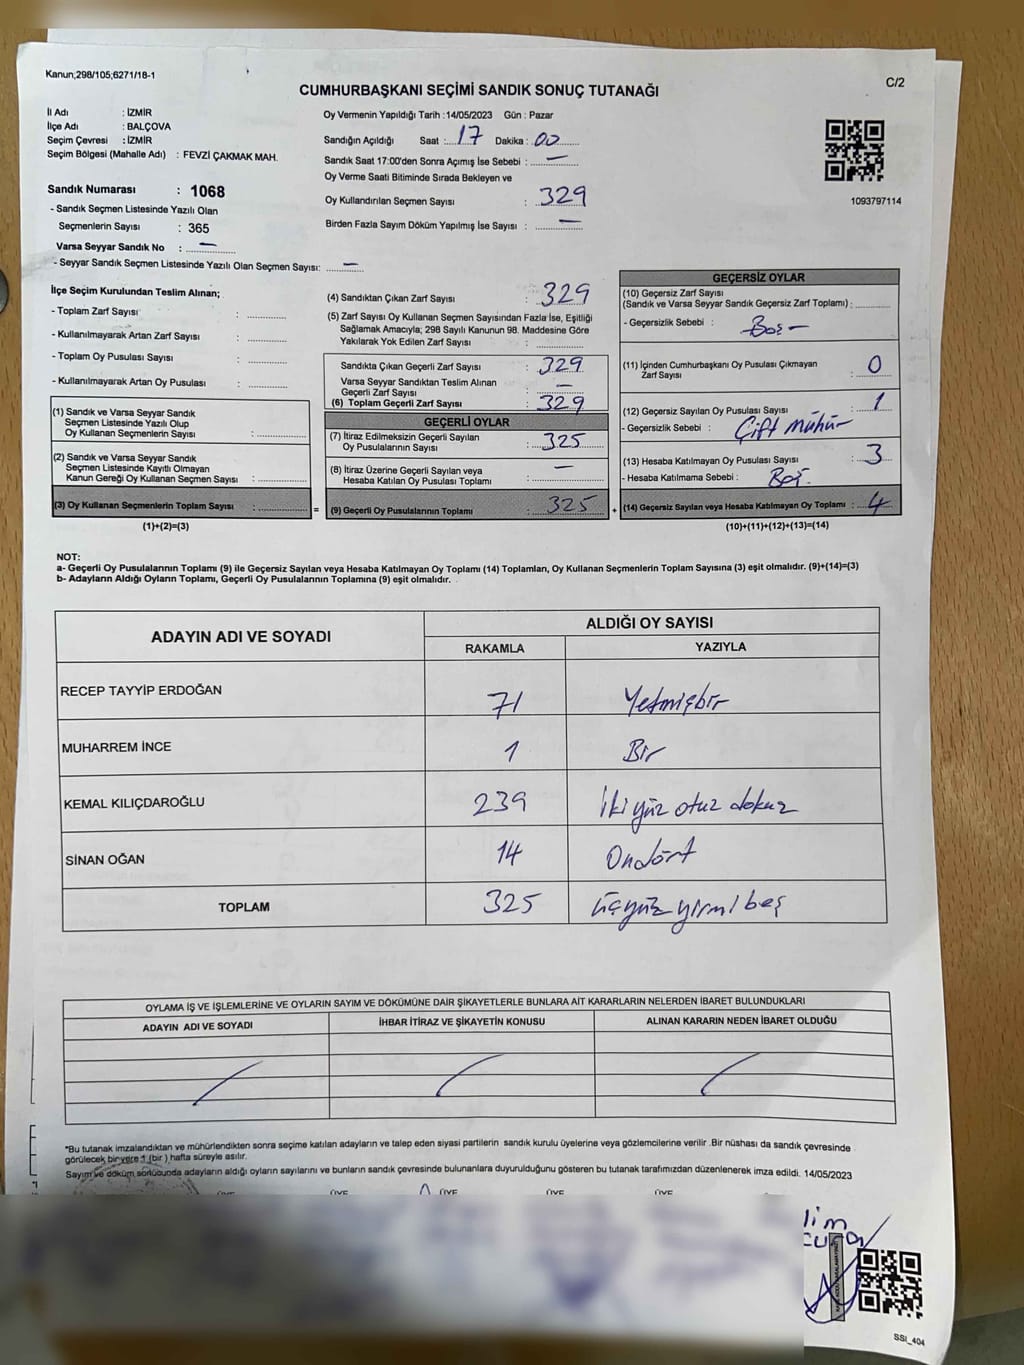 Kanun;298/105;6271/18-1
C/2
CUMHURBAŞKANI SEÇİMİ SANDIK SONUÇ TUTANAĞI
İl Adı : İZMİR
İlçe Adı : BALÇOVA
Seçim Çevresi : İZMİR
Seçim Bölgesi (Mahalle Adı) : FEVZİ ÇAKMAK MAH.
Sandık Numarası : 1068
- Sandık Seçmen Listesinde Yazılı Olan
Seçmenlerin Sayısı : 365
Varsa Seyyar Sandık No : —
- Seyyar Sandık Seçmen Listesinde Yazılı Olan Seçmen Sayısı: —
Oy Vermenin Yapıldığı Tarih :14/05/2023 Gün : Pazar
Sandığın Açıldığı Saat : 17 Dakika : 00
Sandık Saat 17:00'den Sonra Açımış İse Sebebi : —
Oy Verme Saati Bitiminde Sırada Bekleyen ve
Oy Kullandırılan Seçmen Sayısı : 329
Birden Fazla Sayım Döküm Yapılmış İse Sayısı : —
1093797114
İlçe Seçim Kurulundan Teslim Alınan;
- Toplam Zarf Sayısı :
- Kullanılmayarak Artan Zarf Sayısı :
- Toplam Oy Pusulası Sayısı :
- Kullanılmayarak Artan Oy Pusulası :
(1) Sandık ve Varsa Seyyar Sandık
Seçmen Listesinde Yazılı Olup
Oy Kullanan Seçmenlerin Sayısı :
(2) Sandık ve Varsa Seyyar Sandık
Seçmen Listesinde Kayıtlı Olmayan
Kanun Gereği Oy Kullanan Seçmen Sayısı :
(3) Oy Kullanan Seçmenlerin Toplam Sayısı : =
(1)+(2)=(3)
(4) Sandıktan Çıkan Zarf Sayısı : 329
(5) Zarf Sayısı Oy Kullanan Seçmen Sayısından Fazla İse, Eşitliği
Sağlamak Amacıyla; 298 Sayılı Kanunun 98. Maddesine Göre
Yakılarak Yok Edilen Zarf Sayısı :
Sandıkta Çıkan Geçerli Zarf Sayısı : 329
Varsa Seyyar Sandıktan Teslim Alınan
Geçerli Zarf Sayısı : —
(6) Toplam Geçerli Zarf Sayısı : 329
GEÇERLİ OYLAR
(7) İtiraz Edilmeksizin Geçerli Sayılan
Oy Pusulalarının Sayısı : 325
(8) İtiraz Üzerine Geçerli Sayılan veya
Hesaba Katılan Oy Pusulası Toplamı : —
(9) Geçerli Oy Pusulalarının Toplamı : 325 +
GEÇERSİZ OYLAR
(10) Geçersiz Zarf Sayısı
(Sandık ve Varsa Seyyar Sandık Geçersiz Zarf Toplamı) :
- Geçersizlik Sebebi : Boş —
(11) İçinden Cumhurbaşkanı Oy Pusulası Çıkmayan
Zarf Sayısı : 0
(12) Geçersiz Sayılan Oy Pusulası Sayısı : 1
- Geçersizlik Sebebi : Çift mühür
(13) Hesaba Katılmayan Oy Pusulası Sayısı : 3
- Hesaba Katılmama Sebebi : Boş.
(14) Geçersiz Sayılan veya Hesaba Katılmayan Oy Toplamı : 4
(10)+(11)+(12)+(13)=(14)
NOT:
a- Geçerli Oy Pusulalarının Toplamı (9) ile Geçersiz Sayılan veya Hesaba Katılmayan Oy Toplamı (14) Toplamları, Oy Kullanan Seçmenlerin Toplam Sayısına (3) eşit olmalıdır. (9)+(14)=(3)
b- Adayların Aldığı Oyların Toplamı, Geçerli Oy Pusulalarının Toplamına (9) eşit olmalıdır.
ADAYIN ADI VE SOYADI ALDIĞI OY SAYISI
RAKAMLA YAZIYLA
RECEP TAYYİP ERDOĞAN 71 Yetmişbir
MUHARREM İNCE 1 Bir
KEMAL KILIÇDAROĞLU 239 İkiyüz otuz dokuz
SİNAN OĞAN 14 Ondört
TOPLAM 325 üçyüz yirmi beş
OYLAMA İŞ VE İŞLEMLERİNE VE OYLARIN SAYIM VE DÖKÜMÜNE DAİR ŞİKAYETLERLE BUNLARA AİT KARARLARIN NELERDEN İBARET BULUNDUKLARI
ADAYIN ADI VE SOYADI İHBAR İTİRAZ VE ŞİKAYETİN KONUSU ALINAN KARARIN NEDEN İBARET OLDUĞU
*Bu tutanak imzalandıktan ve mühürlendikten sonra seçime katılan adayların ve talep eden siyasi partilerin sandık kurulu üyelerine veya gözlemcilerine verilir .Bir nüshası da sandık çevresinde
görülecek bir yere 1 (bir ) hafta süreyle asılır.
Sayım ve döküm sonucunda adayların aldığı oyların sayılarını ve bunların sandık çevresinde bulunanlara duyurulduğunu gösteren bu tutanak tarafımızdan düzenlenerek imza edildi. 14/05/2023
ÜYE ÜYE ÜYE ÜYE
SSİ_404